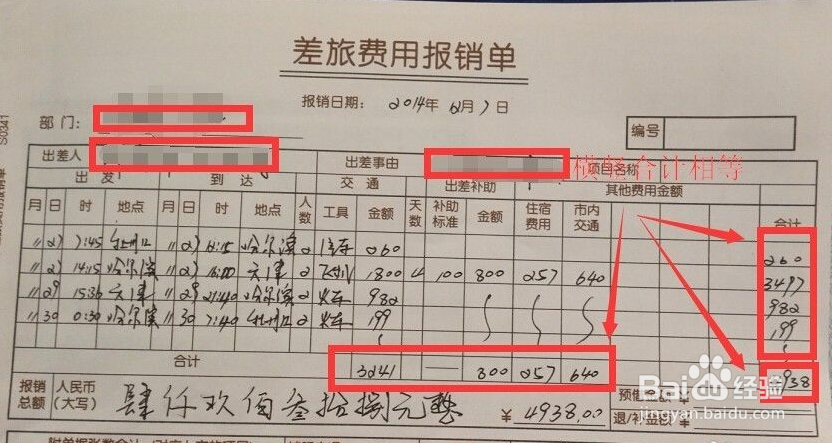 差旅费用报销单
报销日期: 2014年 12月 1日
S0341
部门:
编号
出差人 出差事由 项目名称
横竖合计相等
出发 到达 交通 出差补助 其他费用金额
月 日 时 地点 月 日 时 地点 人数 工具 金额 天数 补助标准 金额 住宿费用 市内交通 合计
11 27 7:45 11 27 12:15 哈尔滨 2 汽车 260 260
11 27 14:15 哈尔滨 11 27 天津 2 飞机 1800 4 100 800 257 640 3497
11 29 15:36 天津 11 29 21:40 哈尔滨 2 火车 982 982
11 30 0:30 哈尔滨 11 30 7:40 2 火车 199 199
合计 3241 — 800 257 640 4938
报销总额 人民币(大写) 肆仟玖佰叁拾捌元整 ¥ 4938.00 预借金额
退/补金额
Baidu经验
jingyan.baidu.com